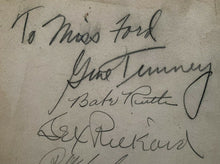 To Miss Ford
Gene Tunney
Babe Ruth
Tex Rickard